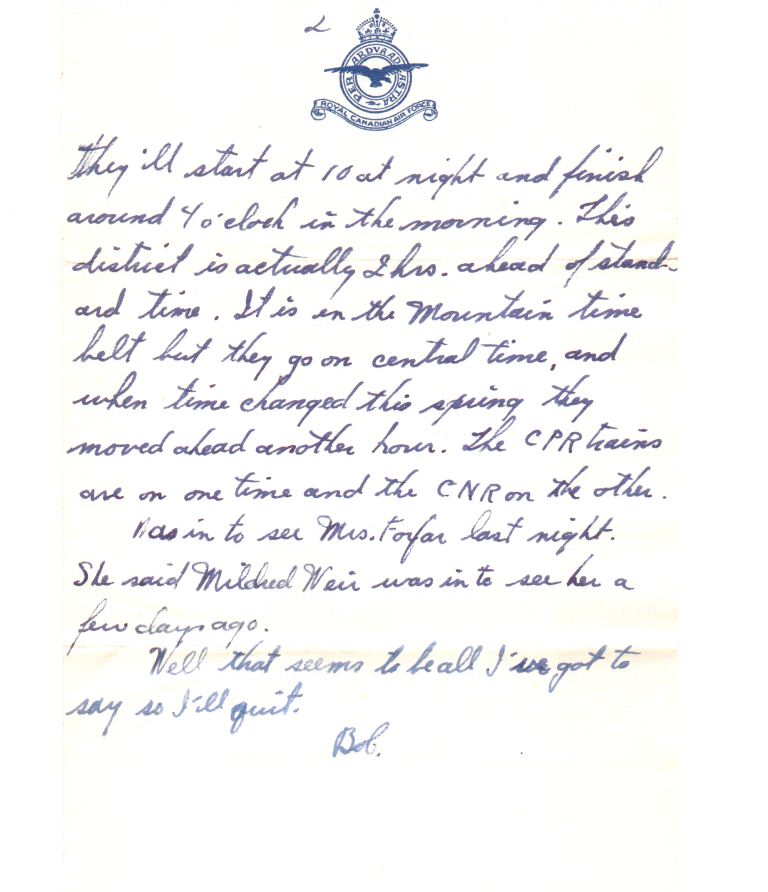 2
PER ARDVA AD ASTRA
ROYAL CANADIAN AIR FORCE
They'll start at 10 at night and finish
around 4 o'clock in the morning. This
district is actually 2 hrs. ahead of stand-
ard time. It is in the Mountain time
belt but they go on central time, and
when time changed this spring they
moved ahead another hour. The CPR trains
are on one time and the CNR on the other.
Was in to see Mrs. Forfar last night.
She said Mildred Weir was in to see her a
few days ago.
Well that seems to be all I've got to
say so I'll quit.
Bob.